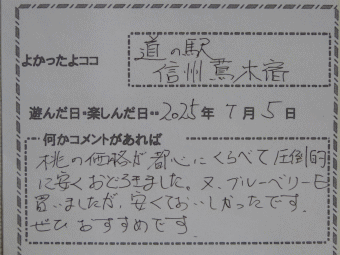 よかったよココ
道の駅
信州蔦木宿
遊んだ日・楽しんだ日・・2025年7月5日
何かコメントがあれば
桃の価格が都心にくらべて圧倒的
に安くおどろきました。又、ブルーベリーモ
買いましたが、安くておいしかったです。
ぜひおすすめです。